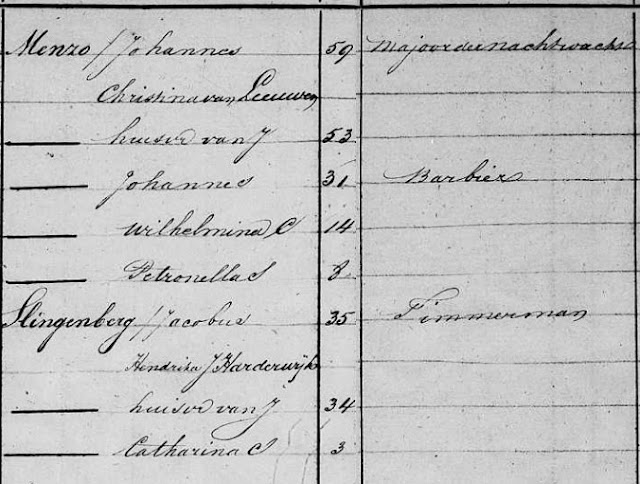 Menzo / Johannes 59 Majoor der nachtwacht
Christina van Leeuwen
huisvr van J 53
Johannes 31 Barbier
Wilhelmina C 14
Petronella S 8
Slingenberg / Jacobus 35 Timmerman
Hendrika J Harderwijk
huisvr van J 34
Catharina S 3